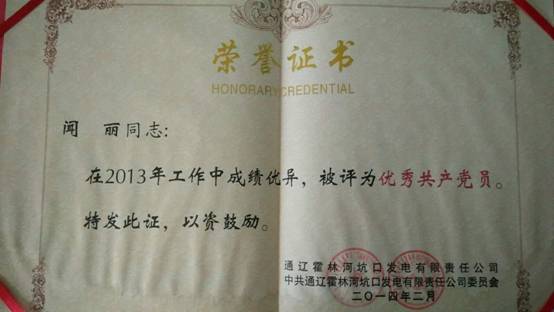 荣誉证书
HONORARY CREDENTIAL
闻 丽同志：
在2013年工作中成绩优异，被评为优秀共产党员。
特发此证，以资鼓励。
通辽霍林河坑口发电有限责任公司
中共通辽霍林河坑口发电有限责任公司委员会
二〇一四年二月